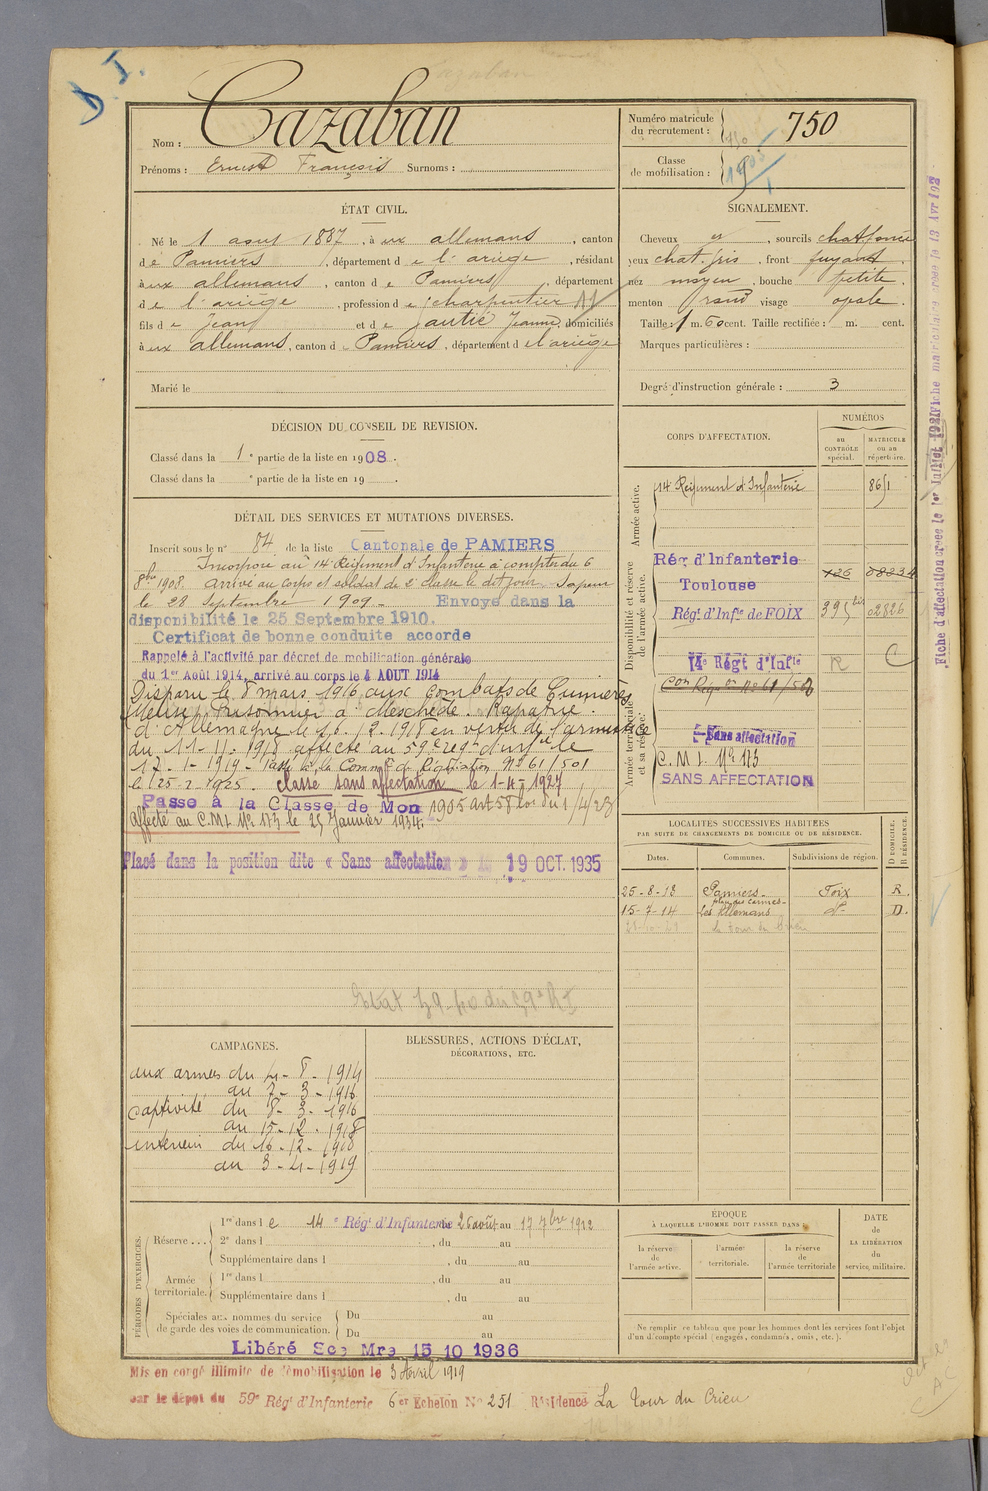 D. I.
Nom : Cazaban
Prénoms : Ernest François Surnoms :
Numéro matricule du recrutement : 750
Classe de mobilisation : 1905
ÉTAT CIVIL.
Né le 1 aout 1887, à ux allemans, canton
de Pamiers, département de l'ariège, résidant
à ux allemans, canton de Pamiers, département
de l'ariège, profession de charpentier
fils de Jean et de Jautié Jeanne, domiciliés
à ux allemans, canton d Pamiers, département d l'ariège
Marié le
SIGNALEMENT.
Cheveux , sourcils chat foncé
yeux chat. gris, front fuyant.
nez moyen, bouche petite.
menton rond visage opale.
Taille : 1 m. 60 cent. Taille rectifiée : m. cent.
Marques particulières :
Degré d'instruction générale : 3
DÉCISION DU CONSEIL DE REVISION.
Classé dans la 1e partie de la liste en 1908.
Classé dans la e partie de la liste en 19 .
DÉTAIL DES SERVICES ET MUTATIONS DIVERSES.
Inscrit sous le n° 84 de la liste Cantonale de PAMIERS
Incorporé au 14e Régiment d'Infanterie à compter du 6
8bre 1908. Arrivé au corps et soldat de 2e classe le dit jour. Sapeur
le 28 Septembre 1909. Envoyé dans la
disponibilité le 25 Septembre 1910.
Certificat de bonne conduite accorde
Rappelé à l'activité par décret de mobilisation générale
du 1er Août 1914, arrivé au corps le 4 AOUT 1914
Disparu le 8 mars 1916 aux combats de Cumières
Meuse, Prisonnier à Meschede. Rapatrié
d'Allemagne le 16.12.1918 en vertu de l'armistice
du 11-11-1918 affecté au 59e reg d'inf le
17-1-1919 - Passé à la Commne de Réquisition N° 61/501
le 25-2-1925. Classé sans affectation le 1-4-1927
Passé à la Classe de Mon 1905 art 58 loi du 1/4/23
Affecté au C.M.I. N° 173 le 25 Janvier 1934.
Placé dans la position dite « Sans affectation » 19 OCT. 1935
CORPS D'AFFECTATION.
NUMÉROS
au CONTRÔLE spécial.
MATRICULE ou au répertoire.
Armée active.
14 Régiment d'Infanterie 8651
Disponibilité et réserve de l'armée active.
Rég d'Infanterie
Toulouse 126 08234
Régt d'Infie de FOIX 395 bis 02826
14e Régt d'Infie R C
Armée territoriale et sa réserve.
Con Réqon N° 61/502
Sans affectation
C.M.I. N° 173
SANS AFFECTATION
LOCALITÉS SUCCESSIVES HABITÉES
PAR SUITE DE CHANGEMENTS DE DOMICILE OU DE RÉSIDENCE.
Dates. Communes. Subdivisions de région. D DOMICILE. R RÉSIDENCE.
25-8-13 Pamiers place des carmes Foix R.
15-7-14 Les Allemans d° D.
la tour du Crieu
CAMPAGNES.
aux armées du 4-8-1914
au 7-3-1916
captivité du 8-3-1916
au 15-12-1918
intérieur du 16-12-1918
au 3-4-1919
BLESSURES, ACTIONS D'ÉCLAT,
DÉCORATIONS, ETC.
PÉRIODES D'EXERCICES.
Réserve ...
1re dans l e 14e Régt d'Infanterie du 26 août au 17 7bre 1912
2e dans l , du au
Supplémentaire dans l , du au
Armée territoriale.
1re dans l , du au
Supplémentaire dans l , du au
Spéciales aux hommes du service de garde des voies de communication.
Du au
Du au
ÉPOQUE
À LAQUELLE L'HOMME DOIT PASSER DANS
la réserve de l'armée active.
l'armée territoriale.
la réserve de l'armée territoriale
DATE de LA LIBÉRATION du service militaire.
Ne remplir ce tableau que pour les hommes dont les services font l'objet
d'un décompte spécial (engagés, condamnés, omis, etc.).
Libéré Sce Mre 15 10 1936
Mis en congé illimité de démobilisation le 3 Avril 1919
par le dépôt du 59e Régt d'Infanterie 6er Echelon N° 251 Résidence La Tour du Crieu